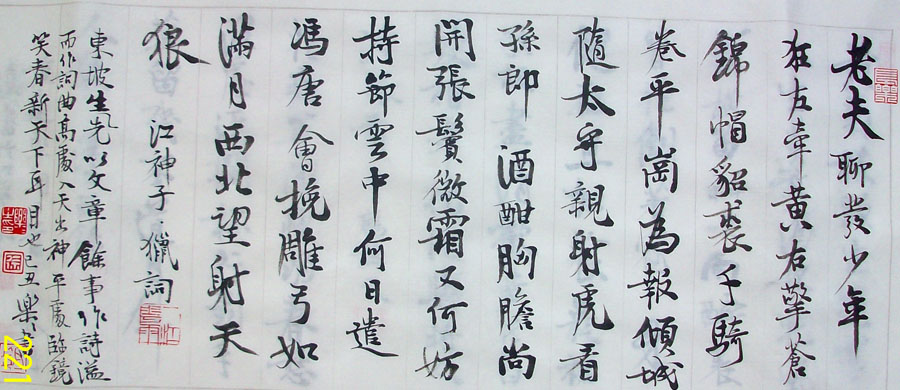 老夫聊發少年
狂左牽黃右擎蒼
錦帽貂裘千騎
卷平崗為報傾城
隨太守親射虎看
孫郎酒酣胸膽尚
開張鬢微霜又何妨
持節雲中何日遣
馮唐會挽雕弓如
滿月西北望射天
狼 江神子 獵詞
東坡生先以文章餘事作詩溢
而作詞曲高處入天出神平處臨鏡
笑春新天下耳目也己丑樂
221